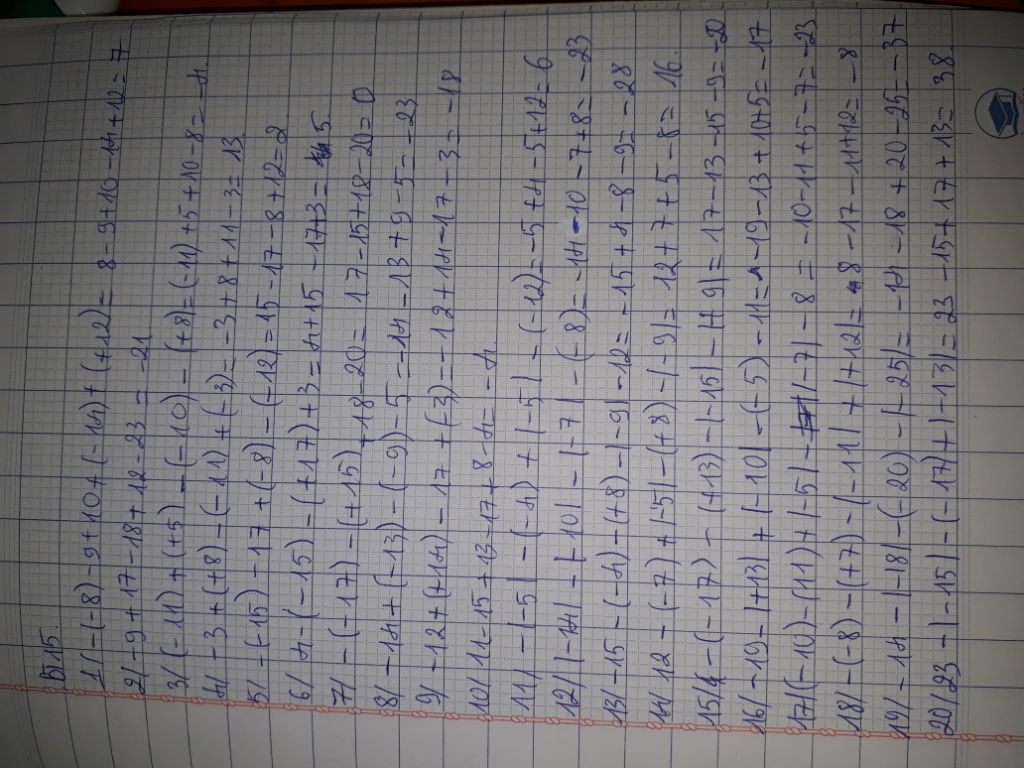 B15
1/ -(-8) -9+10+(-14)+(+12) = 8-9+10-14+12=7
2/ -9+17-18+12-23 = -21
3/ (-11)+(+5) -(-10) -(+8)=(-11)+5+10-8=-4
4/ -3+(+8)-(-11)+(-3)=-3+8+11-3=13
5/ -(-15) -17 +(-8)-(-12)=15-17-8+12=2
6/ 4-(-15)-(+17)+3=4+15-17+3= 5
7/ -(-17) -(+15)+18-20= 17-15+18-20=0
8/ -14+(-13)-(-9)-5=-14-13+9-5=-23
9/ -12+(+14)-17+(-3)=-12+14-17-3=-18
10/ 11-15+13-17+8-4=-4
11/ -|-5| -(-4)+|-5| -(-12)=-5+4-5+12=6
12/ |-14| -|-10| -|-7| -(-8)=-14-10-7+8=-23
13/ -15-(-4)-(+8)-|-9|-12=-15+4-8-9=-28
14/ 12-(-7)+|-5|-(+8)-|-9|= 12+7+5-8=16.
15/ -(-17)-(+13)-|-15|-|+9|=17-13-15-9=-20
16/ -19-|+13|+|-10| -(-5)-11=-19-13+10+5=-17
17/ (-10)-(11)+|-5| -|-7|-8 = -10-11+5-7=-23
18/ -(-8)-(+7)-|-11| + |+12|= 8-17-11+12=-8
19/ -14-|-18|-(-20)-|-25|= -14-18+20-25=-37
20/ 23-|-15|-(-17)+|-13|= 23-15+17+13= 38